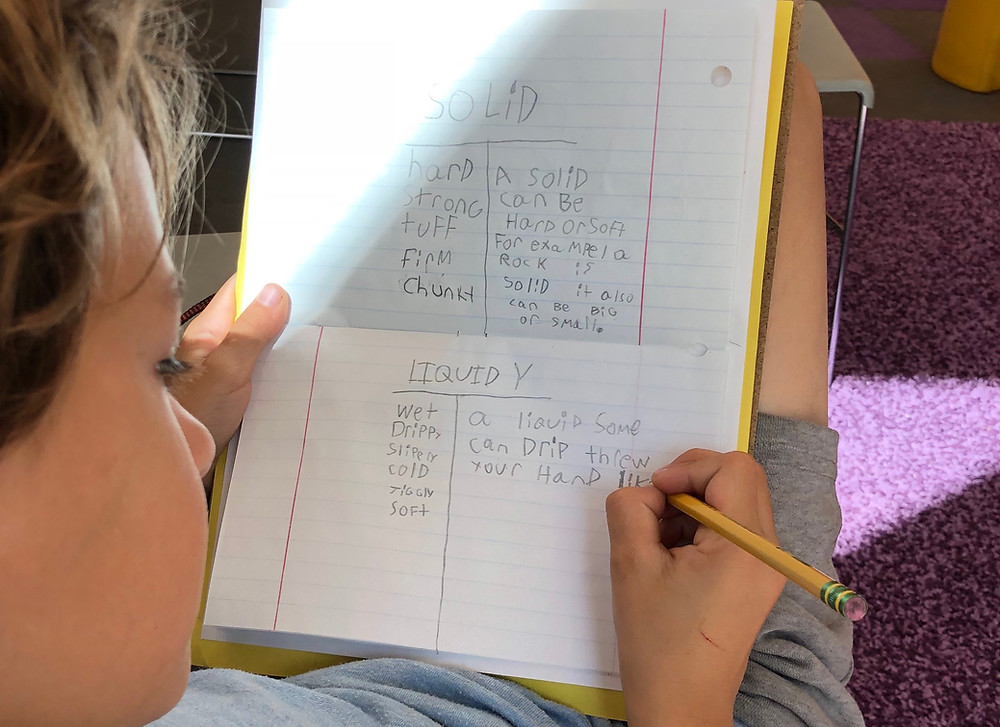 SOLiD
harD
Strong
tuFF
FirM
Chunky
A SoliD
can Be
HarD Or Soft
For exaMpel a
Rock is
SoliD it also
can Be BiG
or small.
LIQUID Y
wet
Drippy
Slipery
colD
JiGGly
SoFt
a liquiD Some
can Drip threw
your HanD lik